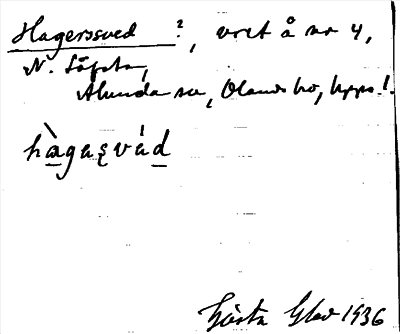 Hagerssved ?, vret å nr 4,
N. Löfsta,
Alunda sn, Olands hd, Upps. l.
hàgaṣvád
Gösta Glad 1936